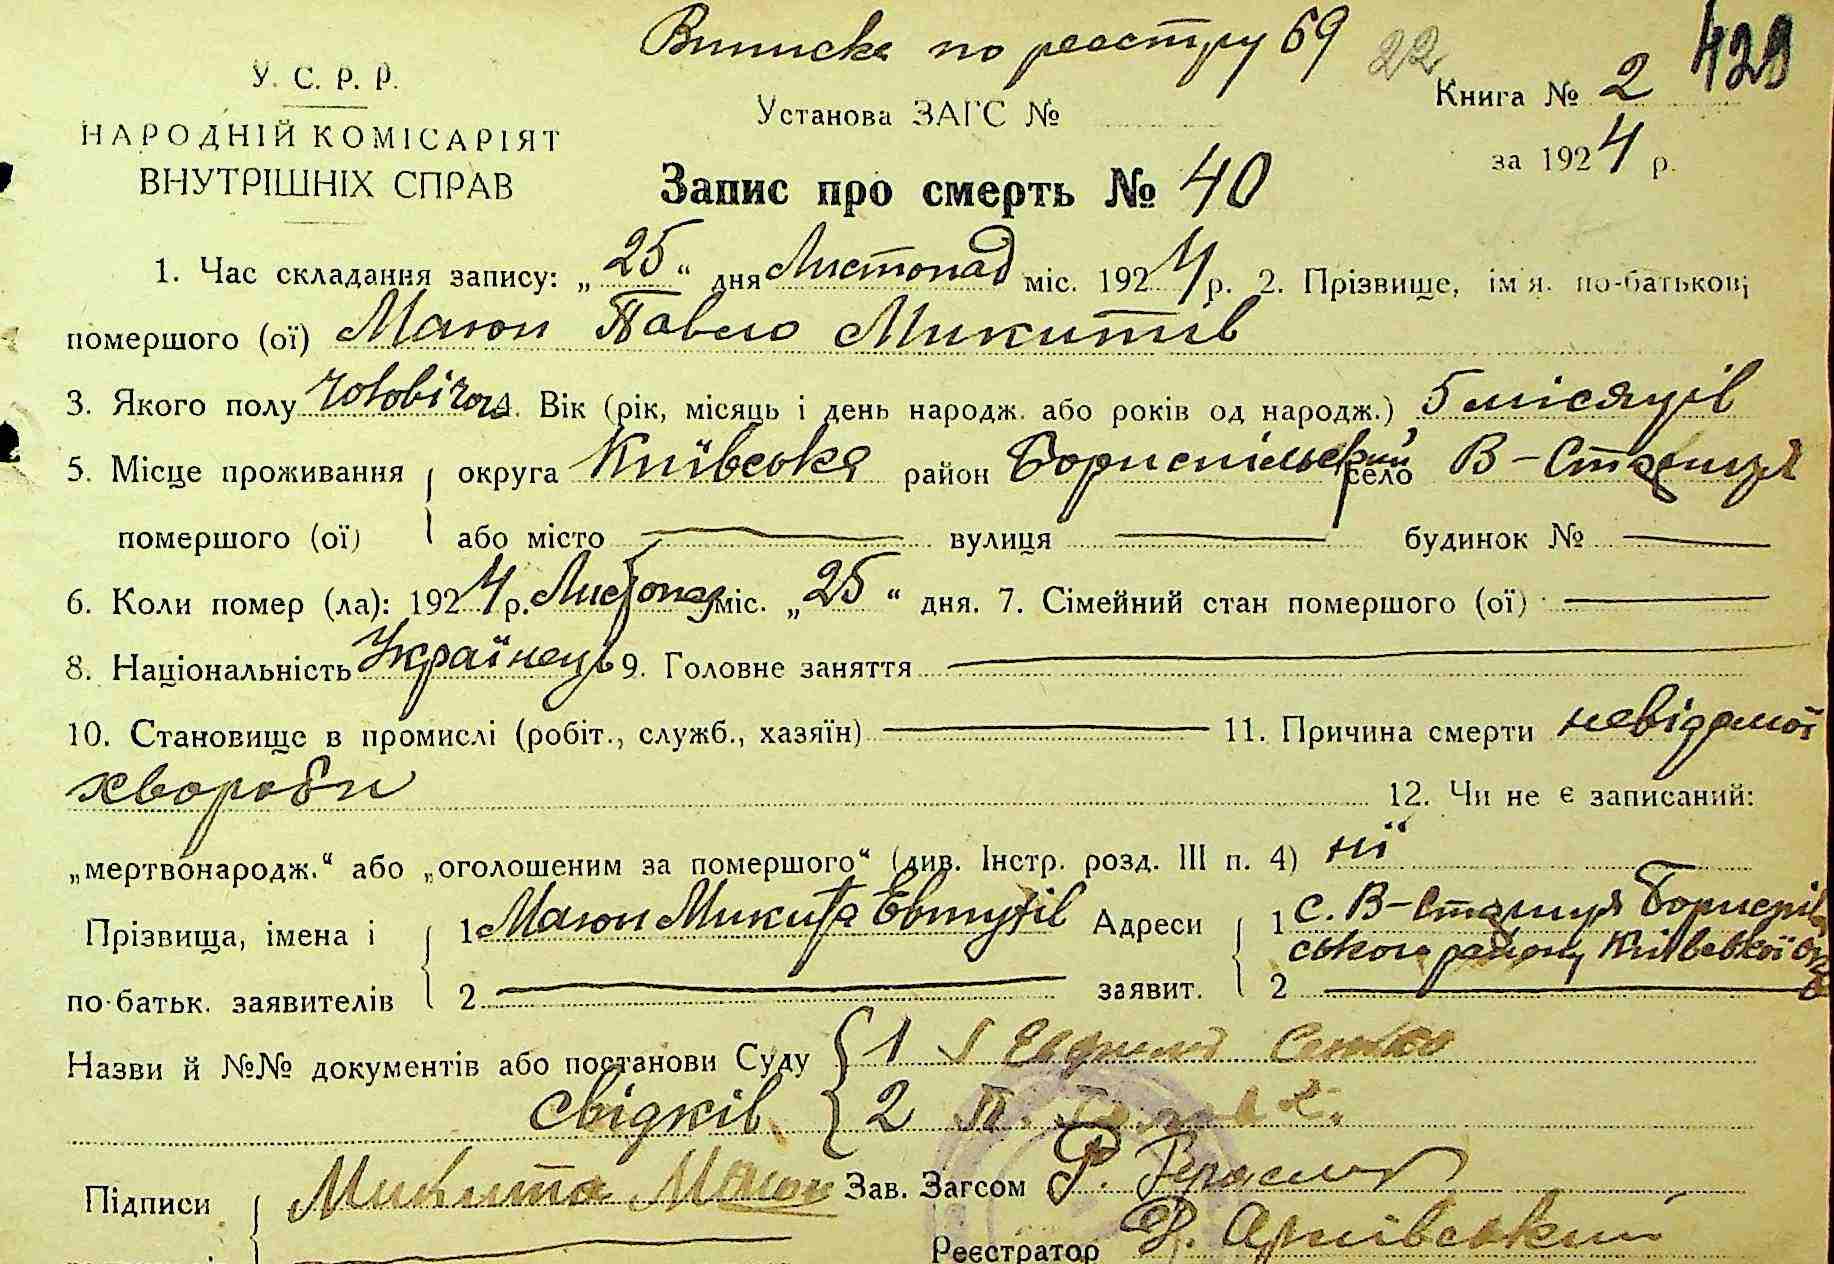 Виписка по реєстру 69 22 429
У. С. Р. Р.
Книга № 2
Установа ЗАГС №
НАРОДНІЙ КОМІСАРІЯТ
за 1924 р.
ВНУТРІШНІХ СПРАВ
Запис про смерть № 40
1. Час складання запису: „25“ дня Листопад міс. 1924 р. 2. Прізвище, ім'я. по-батькові
помершого (ої) Магон Павло Микитів
3. Якого полу чоловічого. Вік (рік, місяць і день народж. або років од народж.) 5 місяців
5. Місце проживання { округа Київська район Бориспільський село В-Стариця
помершого (ої) або місто — вулиця — будинок № —
6. Коли помер (ла): 1924 р. Листопад міс. „25“ дня. 7. Сімейний стан помершого (ої) —
8. Національність Українець 9. Головне заняття —
10. Становище в промислі (робіт., служб., хазяїн) — 11. Причина смерти невідомої
хвороби 12. Чи не є записаний:
„мертвонародж.“ або „оголошеним за помершого“ (див. Інстр. розд. III п. 4) ні
Прізвища, імена і { 1 Магон Микита Євтухів Адреси { 1 с. В-Стариця Бориспіль
ського району Київської Окр
по-батьк. заявителів 2 — заявит. 2 —
Назви й №№ документів або постанови Суду { 1
свідків { 2 П.
Підписи { Микита Магон Зав. Загсом Р.
Реєстратор